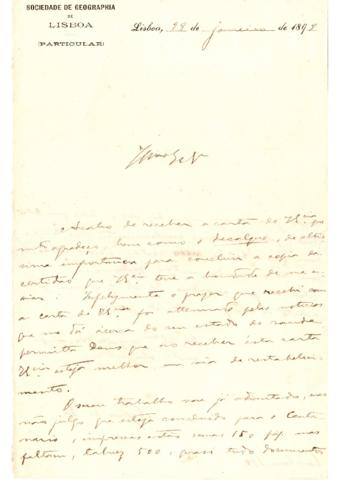 SOCIEDADE DE GEOGRAPHIA
DE
LISBOA
(PARTICULAR)
Lisboa, 22 de janeiro de 1892
Acabo de receber a carta de V. Exª. que
mto agradeço, bem como o decalque, de altis-
sima importancia para concluir a copia da
certidão que V. Exª. teve a bondade de me en-
viar. Infelizmente o prazer que recebi com
a carta de V. Exª. foi attenuado pelas noticias
que me dá ácerca do seu estado de saude
permitta Deus que ao receber esta carta
V. Exª. esteja melhor, em via de restabeleci-
mento.
O meu trabalho vae já adiantado, mas
não julgo que esteja concluido para o Cente-
nario, impressas estão umas 150 pag. mas
faltam, talvez 500, quasi tudo documentos